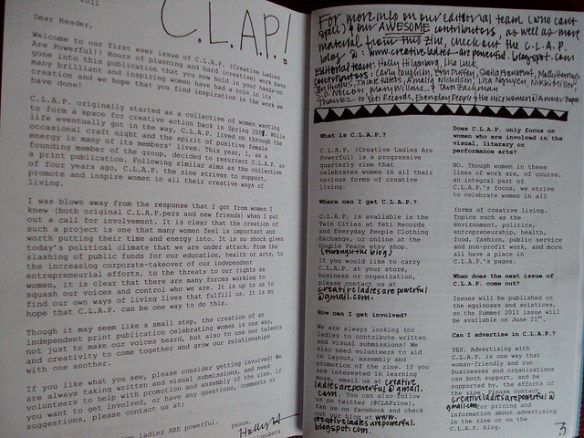 2011
C.L.A.P!
Dear Reader,
Welcome to our first ever issue of C.L.A.P. (Creative Ladies
Are Powerful)! Hours of planning and hard (creative) work have
gone into this publication that you now hold in your hands—so
many brilliant and inspiring women have had a role in its
creation and we hope that you find inspiration in the work we
have done!
C.L.A.P. originally started as a collective of women wanting
to form a space for creative action back in Spring While
life eventually got in the way, C.L.A.P. lived on through the
occasional craft night and the spirit of positive female
energy in many of its members' lives. This year, I, as a
founding member of the group, decided to resurrect C.L.A.P. as
a print publication. Following similar aims as the collective
of four years ago, C.L.A.P. the zine strives to support,
promote and inspire women in all their creative ways of
living.
I was blown away from the response that I got from women I
knew (both original C.L.A.P.pers and new friends) when I put
out a call for involvement. It is clear that the creation of
such a project is one that many women feel is important and
worth putting their time and energy into. It is no shock given
today's political climate that we are under attack. From the
slashing of public funds for our education, health or arts, to
the increasing corporate-takeover of our independent
entrepreneurial efforts, to the threats to our rights as
women, it is clear that there are many forces working to
squash our voices and control who we are. It is up to us to
find our own ways of living lives that fulfill us. It is my
hope that C.L.A.P. can be one way to do this.
Though it may seem like a small step, the creation of an
independent print publication celebrating women is one way,
not just to make our voices heard, but also to use our talents
and creativity to come together and grow our relationships
with one another.
If you like what you see, please consider getting involved! We
are always taking written and visual submissions, and need
volunteers to help with promotion and assembly of the zine. If
you want to get involved, or have any questions, comments or
suggestions, please contact us at:
ladies ARE powerful. peace,
For more info on our editorial team (who can't
spell) & our AWESOME contributors, as well as more
material from this zine, check out the C.L.A.P.
blog @: www.creativeladiesarepowerful.blogspot.com
Editorial team: Holly Hilgenberg, Iris Luck
Contributors: Carla Coughlin,
Jackie Anelle Nicholson, Nguyen, Nikki
Mary Williams & Tara Zackman
Thanks to Yeti Records, Everyday People
What is C.L.A.P.?
C.L.A.P. (Creative Ladies Are
Powerful) is a progressive
quarterly zine that
celebrates women in all their
various forms of creative
living.
Where can I get C.L.A.P.?
C.L.A.P. is available in the
Twin Cities at Yeti Records
and Everyday People Clothing
Exchange, or online at the
Etsy shop
(through the blog)
If you would like to carry
C.L.A.P. at your store,
business or organization,
please contact us at
creativeladiesarepowerful
@gmail.com.
How can I get involved?
We are always looking for
ladies to contribute written
and visual submissions! We
also need volunteers to aid
in layout, assembly and
promotion of the zine. If you
are interested in learning
more, email us at creative
ladiesarepowerful@gmail.
com. You can also follow
us on twitter @CLAPzine).
fan us on facebook and check
out our blog at www.
creativeladiesarepowerful.
blogspot.com.
Does C.L.A.P. only focus on
women who are involved in the
visual, literary or
performance arts?
NO. Though women in these
lines of work are, of course,
an integral part of
C.L.A.P.'s focus, we strive
to celebrate women in all
forms of creative living.
Topics such as the
environment, politics,
entrepreneurship, health,
food, fashion, public service
and non-profit work, and more
all have a place in
C.L.A.P.'s pages.
When does the next issue of
C.L.A.P. come out?
Issues will be published on
the equinoxes and solstices,
so the Summer 2011 issue will
be available on June 21st.
Can I advertise in C.L.A.P.?
YES. Advertising with
C.L.A.P. is one way that
woman-friendly and run
businesses and organizations
can both support, and be
supported by, the efforts of
the zine. Please contact
creativeladiesarepowerful@
gmail.com for pricing and
information about advertising
in the zine or on the
C.L.A.P. blog.
3